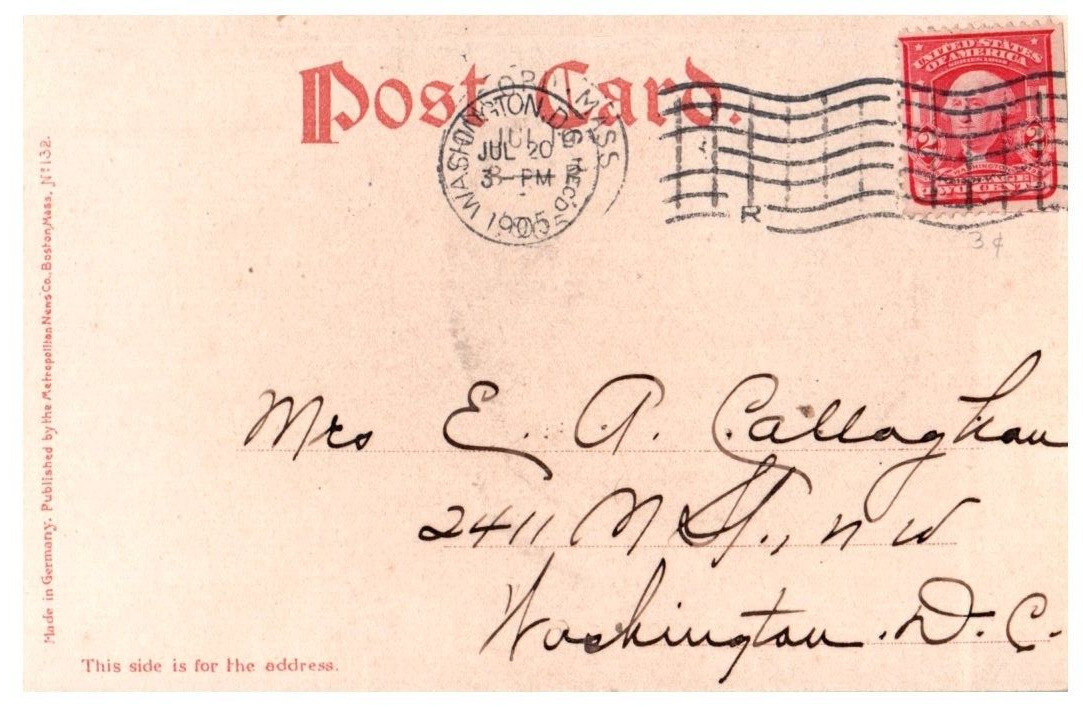 Post Card.
UNITED STATES
OF AMERICA
SERIES 1902
2 2
WASHINGTON
TWO CENTS
MASS
WASHINGTON, D.C.
JUL 20
3 - PM
1905
REC'D
R
3¢
Made in Germany. Published by the Metropolitan News Co., Boston, Mass. No 132.
Mrs E. A. Callaghan
2411 M St., N W
Washington. D. C.
This side is for the address.